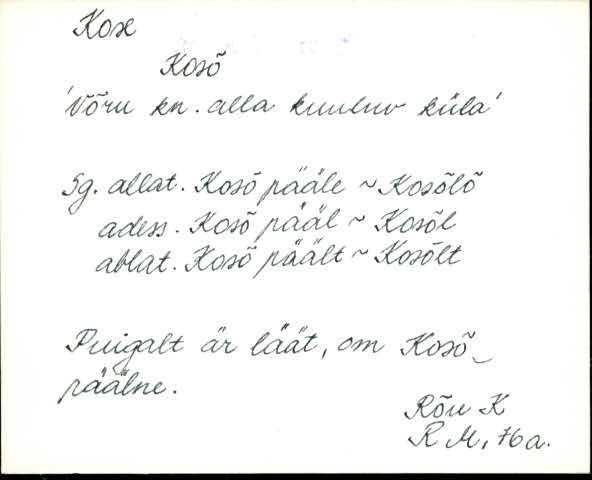 Kose
Kosõ
'Võru kn. alla kuuluv küla'
Sg. allat. Kosõ pääle ~ Kosõlõ
adess. Kosõ pääl ~ Kosõl
ablat. Kosõ päält ~ Kosõlt
Puigalt är läät, om Kosõ‿
päälne.
Rõu K
R M, 76 a.